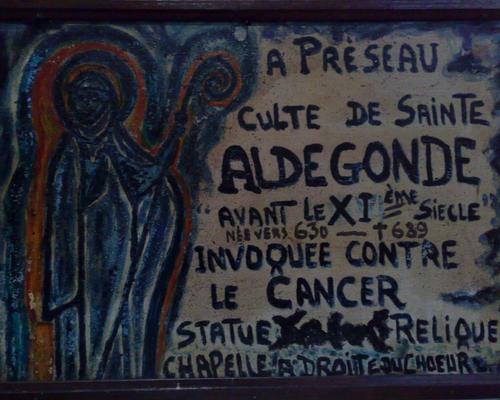 A PRÉSEAU
CULTE DE SAINTE
ALDEGONDE
"AVANT LE XIème SIECLE"
NÉE VERS 630 — † 689
INVOQUÉE CONTRE
LE CANCER
STATUE RELIQUE
CHAPELLE A DROITE DU CHOEUR